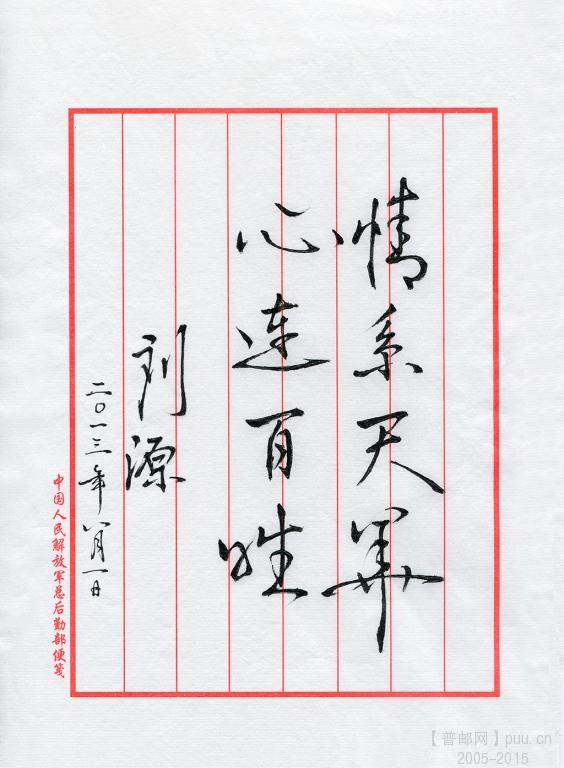 情系天
心连百姓
刘源
二〇一三年八月一日
中国人民解放军总后勤部便笺
【普邮网】puu.cn
2005-2015